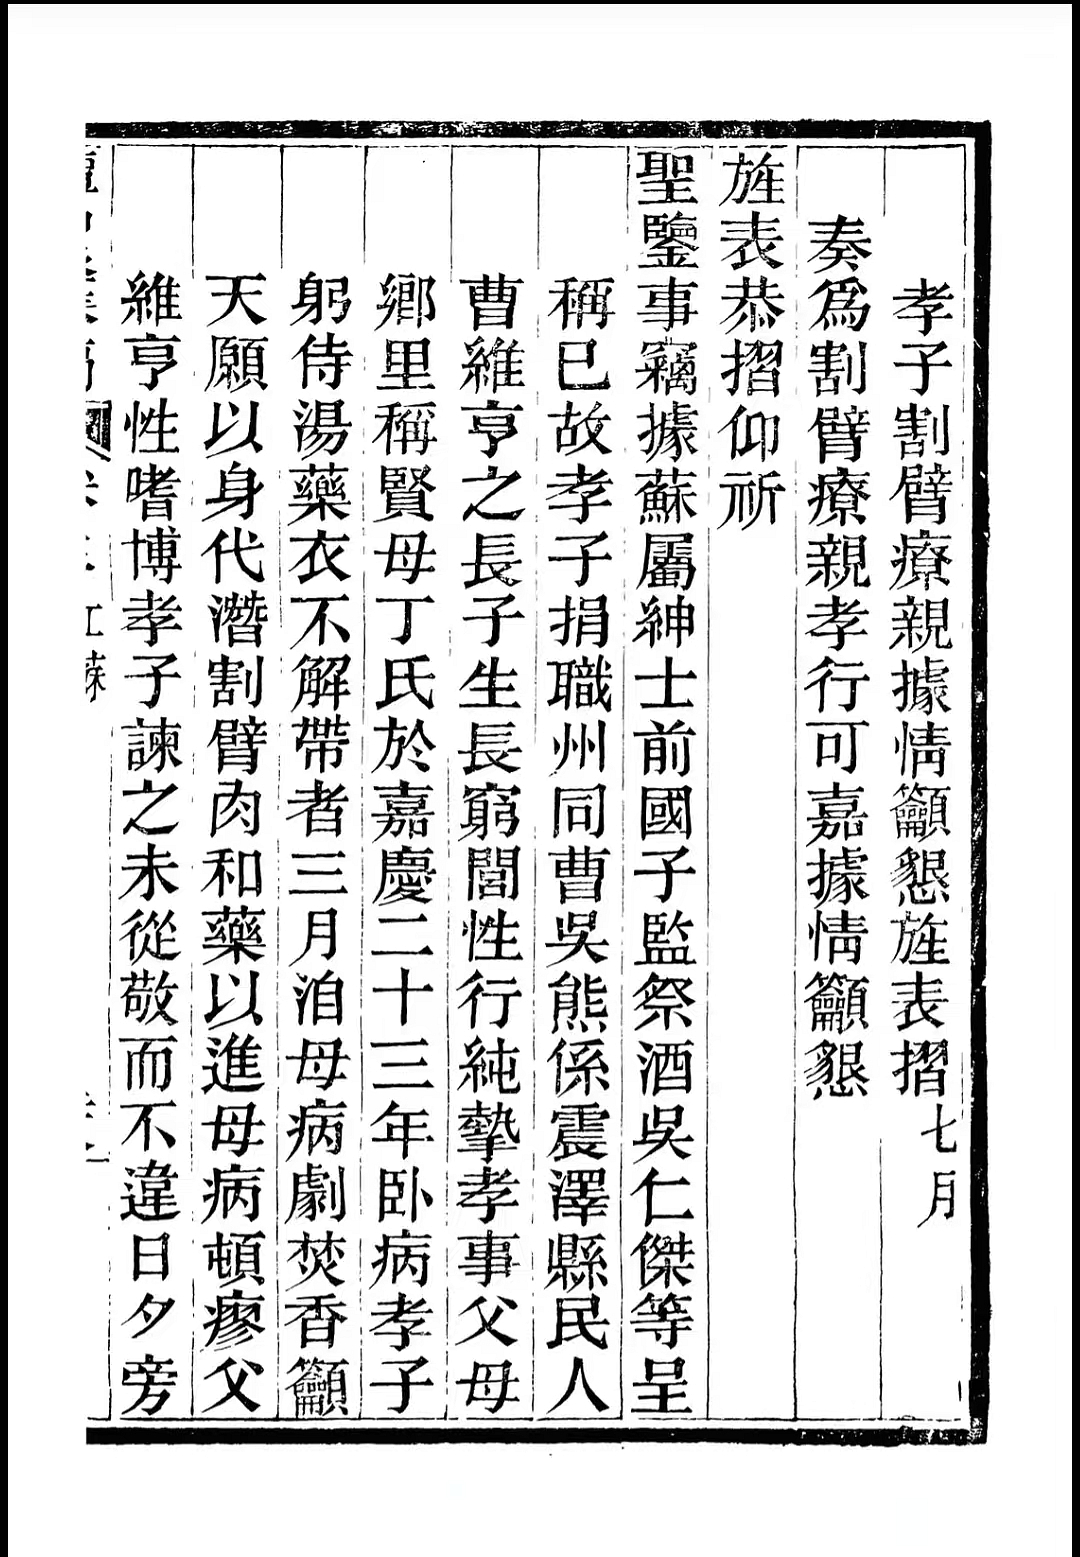 孝子割臂療親據情籲懇旌表摺七月
奏爲割臂療親孝行可嘉據情籲懇
旌表恭摺仰祈
聖鑒事竊據蘇屬紳士前國子監祭酒吳仁傑等呈
稱已故孝子捐職州同曹吳熊係震澤縣民人
曹維亨之長子生長窮閻性行純摯孝事父母
鄉里稱賢母丁氏於嘉慶二十三年卧病孝子
躬侍湯藥衣不解帶者三月洎母病劇焚香籲
天願以身代潛割臂肉和藥以進母病頓瘳父
維亨性嗜博孝子諫之未從敬而不違日夕旁
江蘇